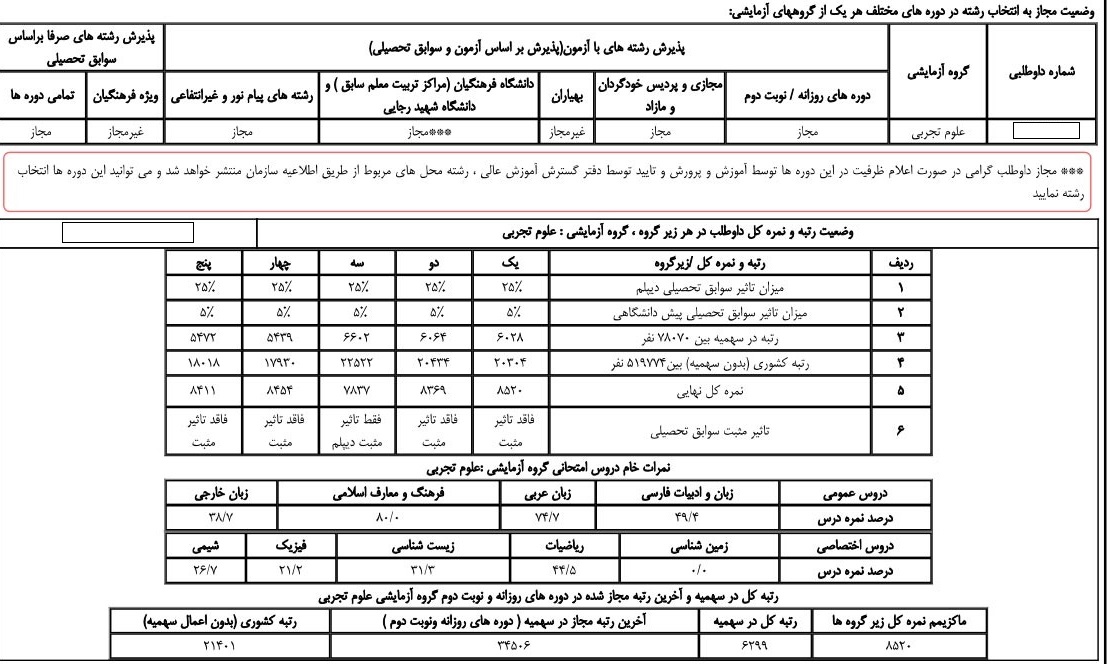 وضعیت مجاز به انتخاب رشته در دوره های مختلف هر یک از گروههای آزمایشی:
شماره داوطلبی | گروه آزمایشی | پذیرش رشته های با آزمون(پذیرش بر اساس آزمون و سوابق تحصیلی) | پذیرش رشته های صرفا براساس سوابق تحصیلی
دوره های روزانه / نوبت دوم | مجازی و پردیس خودگردان و مازاد | بهیاران | دانشگاه فرهنگیان (مراکز تربیت معلم سابق ) و دانشگاه شهید رجایی | رشته های پیام نور و غیرانتفاعی | ویژه فرهنگیان | تمامی دوره ها
علوم تجربی | مجاز | مجاز | غیرمجاز | ***مجاز | مجاز | غیرمجاز | مجاز
*** مجاز داوطلب گرامی در صورت اعلام ظرفیت در این دوره ها توسط آموزش و پرورش و تایید توسط دفتر گسترش آموزش عالی ، رشته محل های مربوط از طریق اطلاعیه سازمان منتشر خواهد شد و می توانید این دوره ها انتخاب
رشته نمایید
وضعیت رتبه و نمره کل داوطلب در هر زیر گروه ، گروه آزمایشی : علوم تجربی
ردیف | رتبه و نمره کل /زیرگروه | یک | دو | سه | چهار | پنج
۱ | میزان تاثیر سوابق تحصیلی دیپلم | ۲۵٪ | ۲۵٪ | ۲۵٪ | ۲۵٪ | ۲۵٪
۲ | میزان تاثیر سوابق تحصیلی پیش دانشگاهی | ۵٪ | ۵٪ | ۵٪ | ۵٪ | ۵٪
۳ | رتبه در سهمیه بین ۷۸۰۷۰ نفر | ۶۰۲۸ | ۶۰۶۴ | ۶۶۰۲ | ۵۴۳۹ | ۵۴۷۲
۴ | رتبه کشوری (بدون سهمیه) بین ۵۱۹۷۷۴ نفر | ۲۰۳۰۴ | ۲۰۴۳۴ | ۲۲۵۲۲ | ۱۷۹۳۰ | ۱۸۰۱۸
۵ | نمره کل نهایی | ۸۵۲۰ | ۸۳۶۹ | ۷۸۳۷ | ۸۴۵۴ | ۸۴۱۱
۶ | تاثیر مثبت سوابق تحصیلی | فاقد تاثیر مثبت | فاقد تاثیر مثبت | فقط تاثیر مثبت دیپلم | فاقد تاثیر مثبت | فاقد تاثیر مثبت
نمرات خام دروس امتحانی گروه آزمایشی :علوم تجربی
دروس عمومی | زبان و ادبیات فارسی | زبان عربی | فرهنگ و معارف اسلامی | زبان خارجی
درصد نمره درس | ۴۹/۴ | ۷۴/۷ | ۸۰/۰ | ۳۸/۷
دروس اختصاصی | زمین شناسی | ریاضیات | زیست شناسی | فیزیک | شیمی
درصد نمره درس | ۰/۰ | ۴۴/۵ | ۳۱/۳ | ۲۱/۲ | ۲۶/۷
رتبه کل در سهمیه و آخرین رتبه مجاز شده در دوره های روزانه و نوبت دوم گروه آزمایشی علوم تجربی
ماکزیمم نمره کل زیر گروه ها | رتبه کل در سهمیه | آخرین رتبه مجاز در سهمیه ( دوره های روزانه ونوبت دوم ) | رتبه کشوری (بدون اعمال سهمیه)
۸۵۲۰ | ۶۲۹۹ | ۳۴۵۰۶ | ۲۱۴۰۱